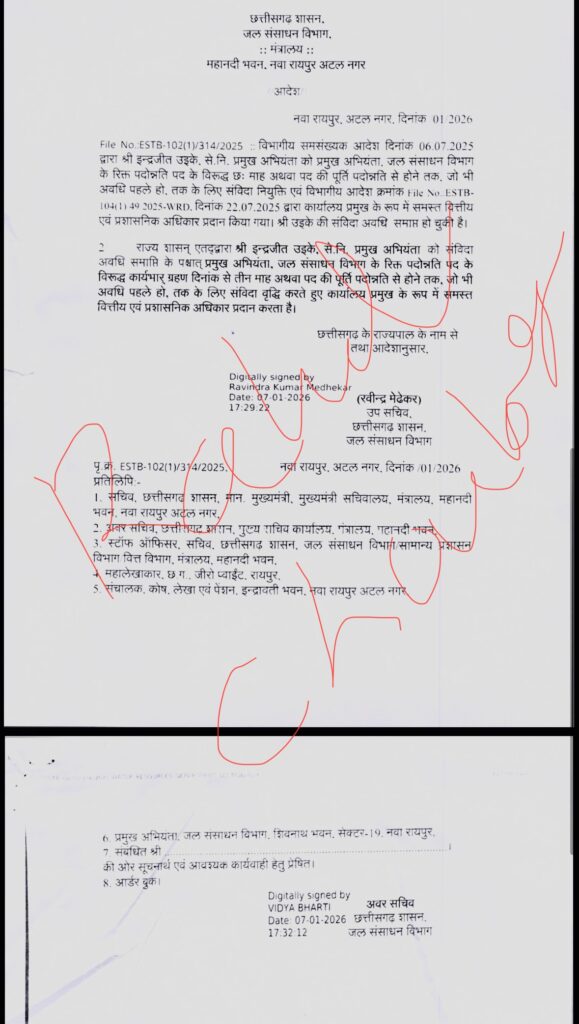 छत्तीसगढ़ शासन,
जल संसाधन विभाग,
:: मंत्रालय ::
महानदी भवन, नवा रायपुर अटल नगर
आदेश
नवा रायपुर, अटल नगर, दिनांक 01/2026
File No.:ESTB-102(1)/314/2025 :: विभागीय समसंख्यक आदेश दिनांक 06.07.2025
द्वारा श्री इन्द्रजीत उइके, से.नि. प्रमुख अभियंता को प्रमुख अभियंता, जल संसाधन विभाग
के रिक्त पदोन्नति पद के विरूद्ध छः माह अथवा पद की पूर्ति पदोन्नति से होने तक, जो भी
अवधि पहले हो, तक के लिए संविदा नियुक्ति एवं विभागीय आदेश क्रमांक File No.:ESTB-
104(1) 49 2025-WRD, दिनांक 22.07.2025 द्वारा कार्यालय प्रमुख के रूप में समस्त वित्तीय
एवं प्रशासनिक अधिकार प्रदान किया गया। श्री उइके की संविदा अवधि समाप्त हो चुकी है।
2 राज्य शासन् एतद्द्वारा श्री इन्द्रजीत उइके, से.नि. प्रमुख अभियंता को संविदा
अवधि समाप्ति के पश्चात् प्रमुख अभियंता, जल संसाधन विभाग के रिक्त पदोन्नति पद के
विरूद्ध कार्यभार ग्रहण दिनांक से तीन माह अथवा पद की पूर्ति पदोन्नति से होने तक, जो भी
अवधि पहले हो, तक के लिए संविदा वृद्धि करते हुए कार्यालय प्रमुख के रूप में समस्त
वित्तीय एवं प्रशासनिक अधिकार प्रदान करता है।
छत्तीसगढ़ के राज्यपाल के नाम से
तथा आदेशानुसार,
Digitally signed by
Ravindra Kumar Medhekar
Date: 07-01-2026
17:29:22
(रवीन्द्र मेढेकर)
उप सचिव,
छत्तीसगढ़ शासन,
जल संसाधन विभाग
पृ.क्र. ESTB-102(1)/314/2025, नवा रायपुर, अटल नगर, दिनांक /01/2026
प्रतिलिपि:-
1. सचिव, छत्तीसगढ़ शासन, मान. मुख्यमंत्री, मुख्यमंत्री सचिवालय, मंत्रालय, महानदी
भवन, नवा रायपुर अटल नगर,
2. अवर सचिव, छत्तीसगढ़ शासन, मुख्य सचिव कार्यालय, मंत्रालय, महानदी भवन,
3. स्टॉफ ऑफिसर, सचिव, छत्तीसगढ़ शासन, जल संसाधन विभाग/सामान्य प्रशासन
विभाग/वित्त विभाग, मंत्रालय, महानदी भवन,
4 महालेखाकार, छ ग., जीरो प्वाईंट, रायपुर,
5. संचालक, कोष, लेखा एवं पेंशन, इन्द्रावती भवन, नवा रायपुर अटल नगर
Chaubey
6. प्रमुख अभियंता, जल संसाधन विभाग, शिवनाथ भवन, सेक्टर-19, नवा रायपुर,
7. संबंधित श्री
की ओर सूचनार्थ एवं आवश्यक कार्यवाही हेतु प्रेषित।
8. आर्डर बुक।
Digitally signed by
VIDYA BHARTI
Date: 07-01-2026
17:32:12
अवर सचिव
छत्तीसगढ़ शासन,
जल संसाधन विभाग